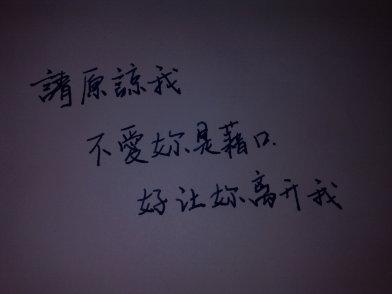 請原諒我
不愛妳是藉口.
好让妳离开我